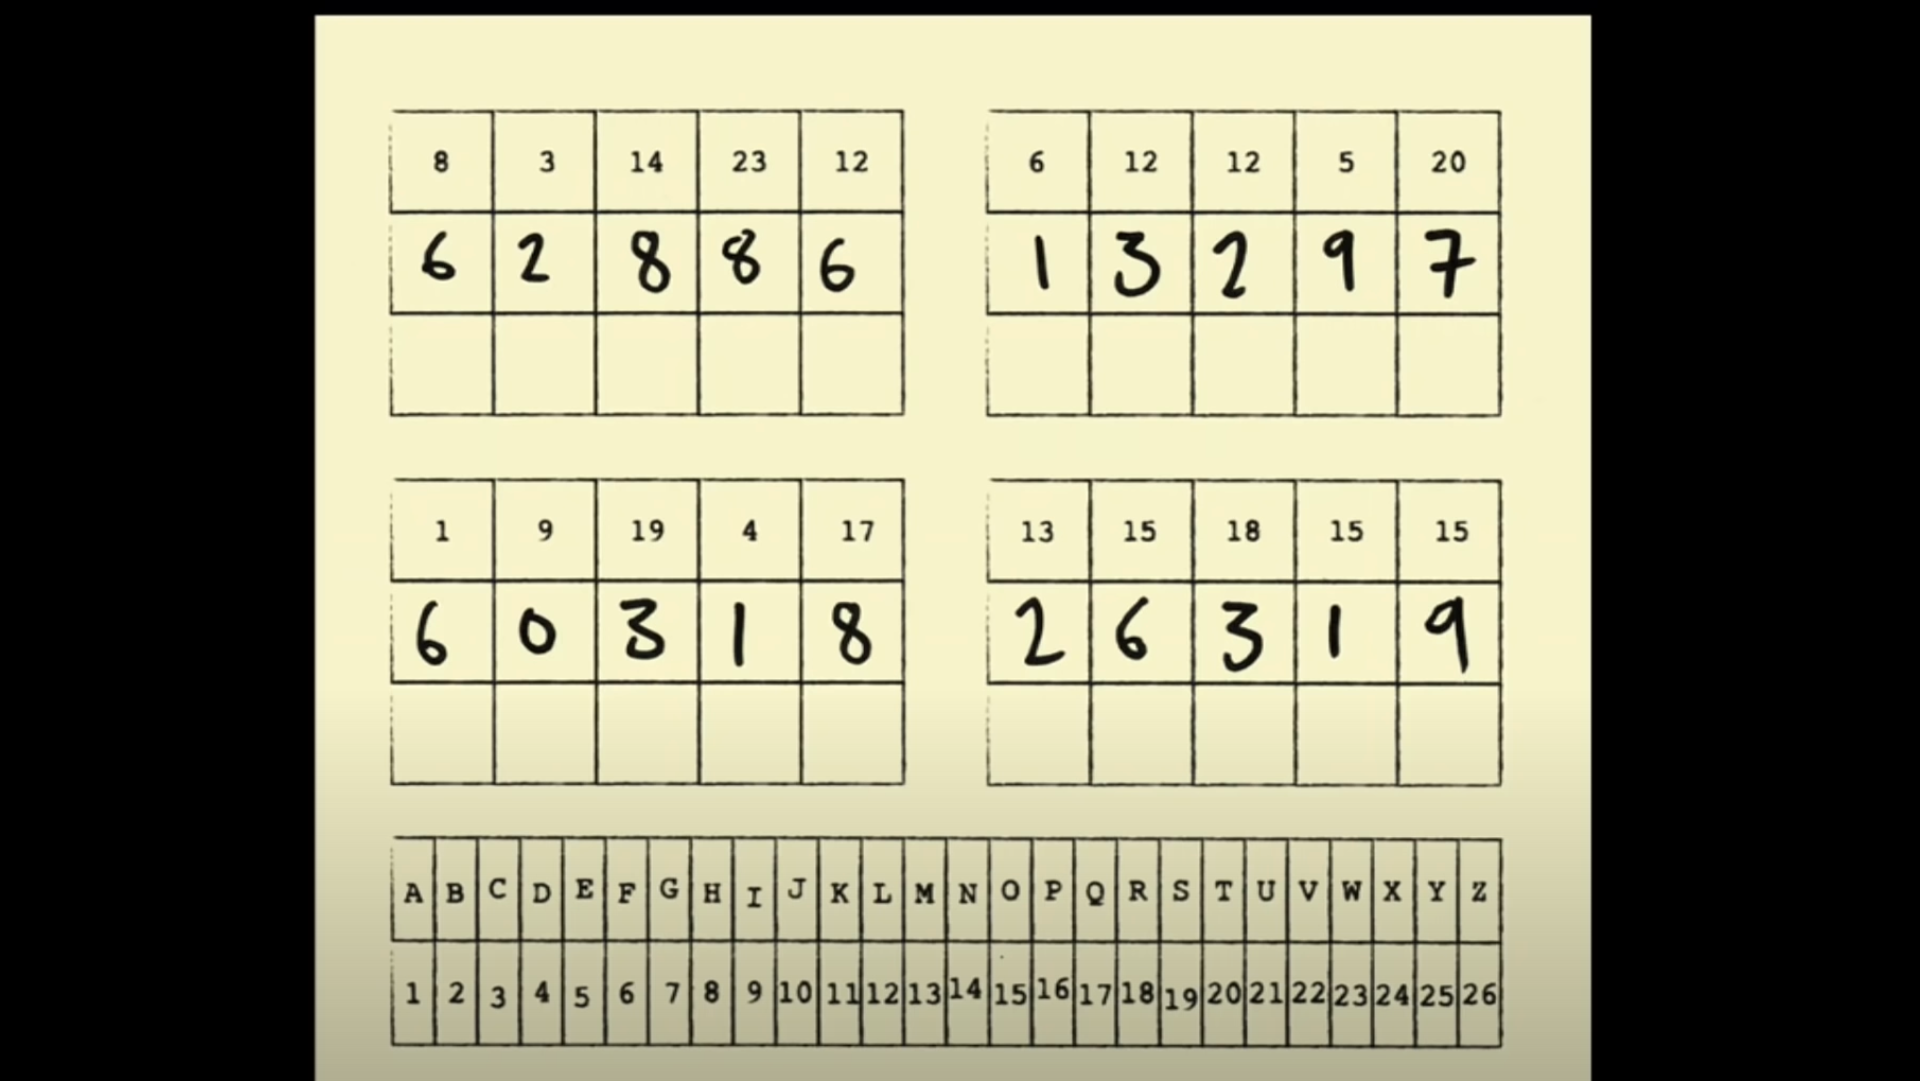 8 3 14 23 12
6 2 8 8 6
6 12 12 5 20
1 3 2 9 7
1 9 19 4 17
6 0 3 1 8
13 15 18 15 15
2 6 3 1 9
A B C D E F G H I J K L M N O P Q R S T U V W X Y Z
1 2 3 4 5 6 7 8 9 10 11 12 13 14 15 16 17 18 19 20 21 22 23 24 25 26